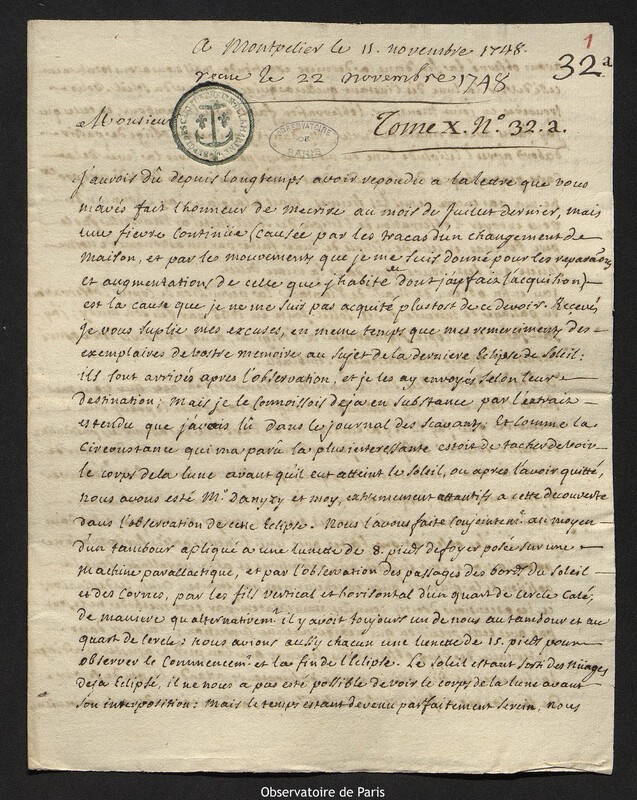 1
32.a
A Montpelier le 11. novembre 1748.
reçue le 22 novembre 1748
Monsieur
OBSERVATOIRE
DE
PARIS
Tome X. N.o 32.a.
J'aurois dû depuis longtemps avoir repondu a la lettre que vous
m'avés fait l'honneur de m'ecrire au mois de Juillet dernier, mais
une fievre continüe (causée par les tracas d'un changement de
Maison, et par le mouvements que je me suis donné pour les reparations
et augmentations de celle que j'habite et dont j'ay fait l'acquisition)
est la cause que je ne me suis pas acquité plustost de ce devoir. Recevés
je vous suplie mes excuses, en meme temps que mes remerciments des
exemplaires de vostre memoire au sujet de la derniere Eclipse de Soleil:
ils sont arrivés apres l'observation, et je les ay envoyés selon leur
destination; Mais je le connoissois deja en substance par l'extrait
estendu que j'avois lû dans le journal des Scavants: Et comme la
Circonstance qui m'a parû la plus interessante estoit de tacher de voir
le corps de la lune avant qu'il eut atteint le Soleil, ou après l'avoir quitté,
nous avons esté M.r Danyzy et moy, extremement attentifs a cette decouverte
dans l'observation de cette Eclipse. Nous l'avons faite conjointem.t au moyen
d'un tambour apliqué a une lunette de 8. pieds de foyer posée sur une
Machine parallactique, et par l'observation des passages des bords du Soleil
et des Cornes, par les fils vertical et horisontal d'un quart de Cercle Calé,
de maniere qu'alternativem.t il y avoit toujours un de nous au tambour et au
quart de Cercle: nous avions aussy chacun une lunette de 15. pieds pour
observer le Commencem.t et la fin de l'Eclipse. Le Soleil estant sorti des Nuages
deja Eclipsé, il ne nous a pas esté possible de voir le corps de la lune avant
son interposition: Mais le temps estant devenu parfaitement serein, nous
Observatoire de Paris